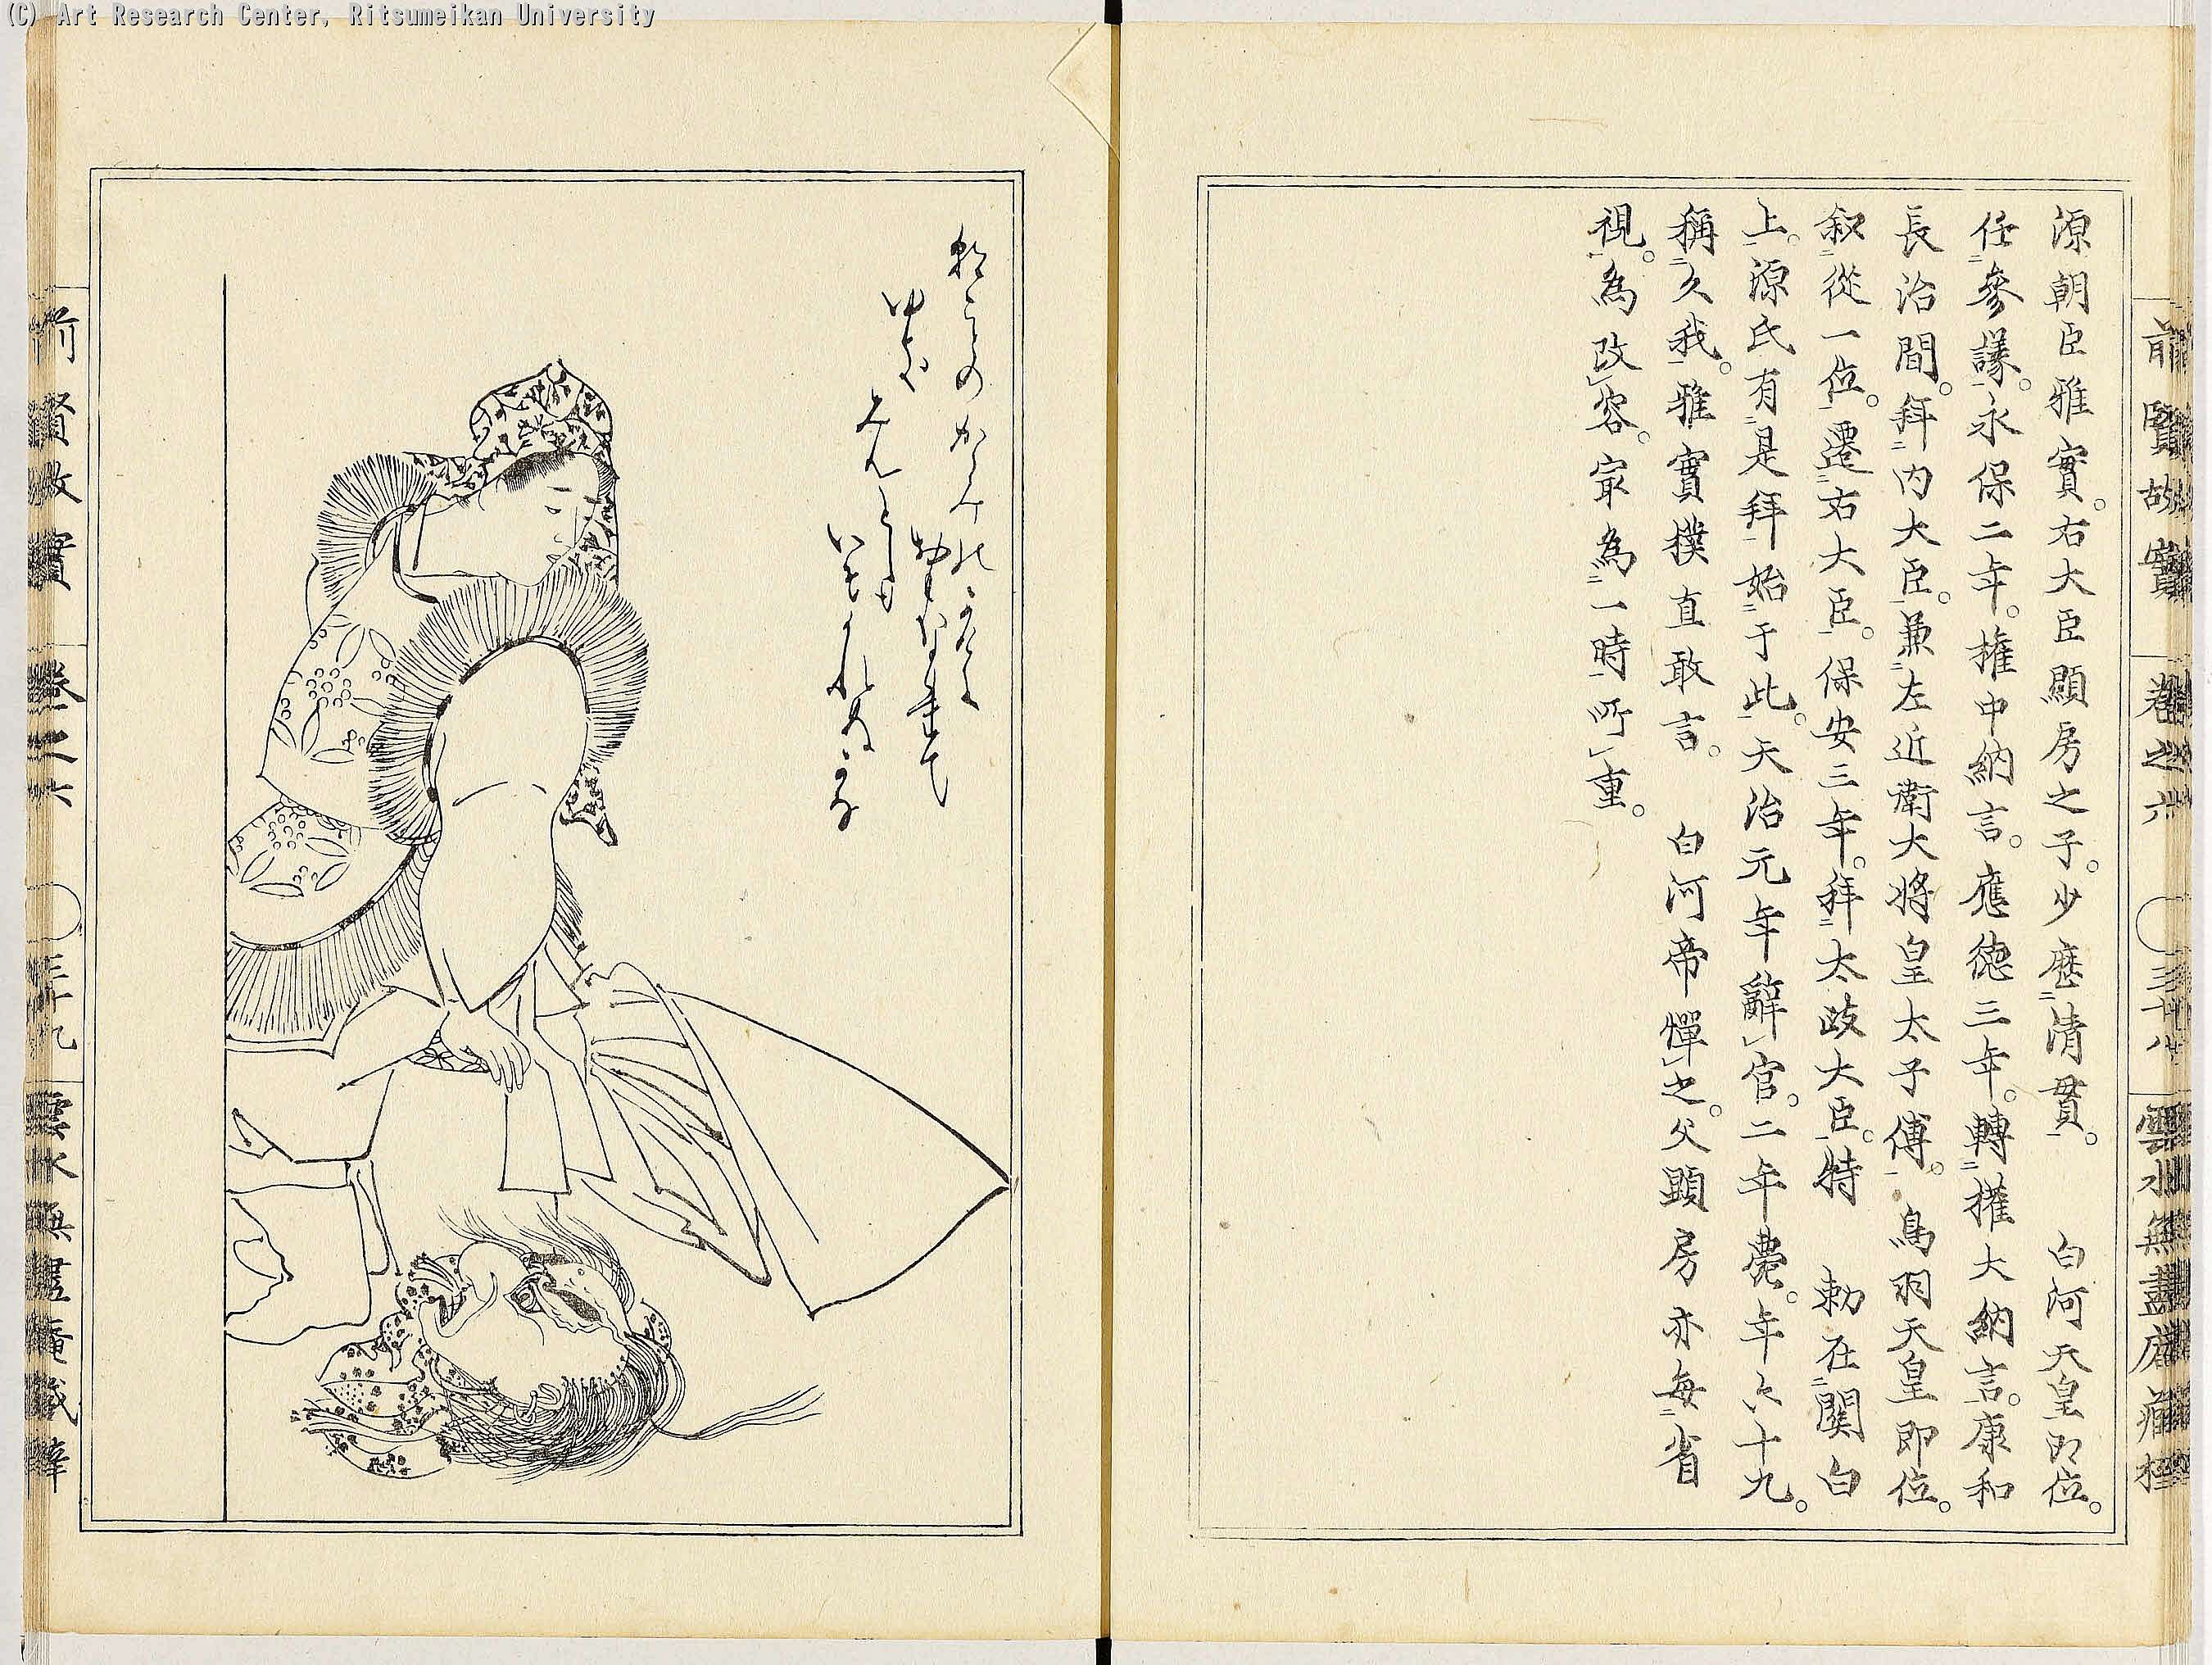 (C) Art Research Center, Ritsumeikan University
前賢故實 卷之六 三十八 雲水無盡庵藏梓
源朝臣雅實。右大臣顯房之子。少歷清貫。 白河天皇即位。
任參議。永保二年。權中納言。應德三年。轉權大納言。康和
長治間。拜內大臣。兼左近衛大將皇太子傅。鳥羽天皇即位。
叙從一位。遷右大臣。保安三年。拜太政大臣。特 勅在關白
上。源氏有是拜始于此。天治元年辭官。二年薨。年六十九。
稱久我。雅實撲直敢言。 白河帝憚之。父顯房亦每省
視。為改容。㝡為一時所重。
ゆき
前賢故實 卷之六 三十九 雲水無盡庵藏梓